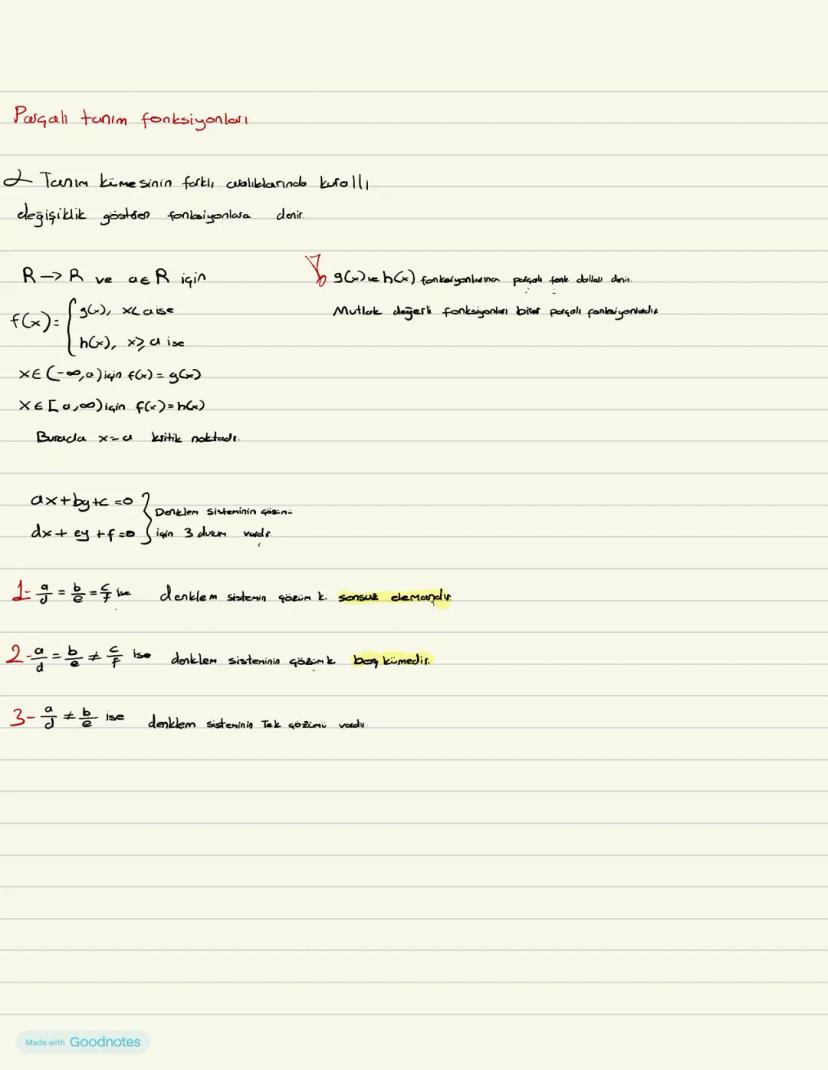 Parçalı tanım fonksiyonları
Tanım kümesinin farklı aralıklarında kurallı
değişiklik gösteren fonksiyonlara denir.
R → R ve a∈R için
f(x) = { g(x), x<a ise
h(x), x≥a ise
x∈(-∞,a) için f(x) = g(x)
x∈[a,∞) için f(x) = h(x)
Burada x=a kritik noktadır.
g(x) ve h(x) fonksiyonlarına parçalı fonk dalları denir.
Mutlak değerli fonksiyonları birer parçalı fonksiyondur
ax+by+c=0 } Denklem sisteminin çözümü
dx+ey+f=0 } için 3 durum vardır
1- a/d = b/e = c/f ise denklem sistemin çözüm k. sonsuz elemanlıdır.
2- a/d = b/e ≠ c/f ise denklem sisteminin çözüm k boş kümedir.
3- a/d ≠ b/e ise denklem sisteminin Tek çözümü vardır.
Made with Goodnotes